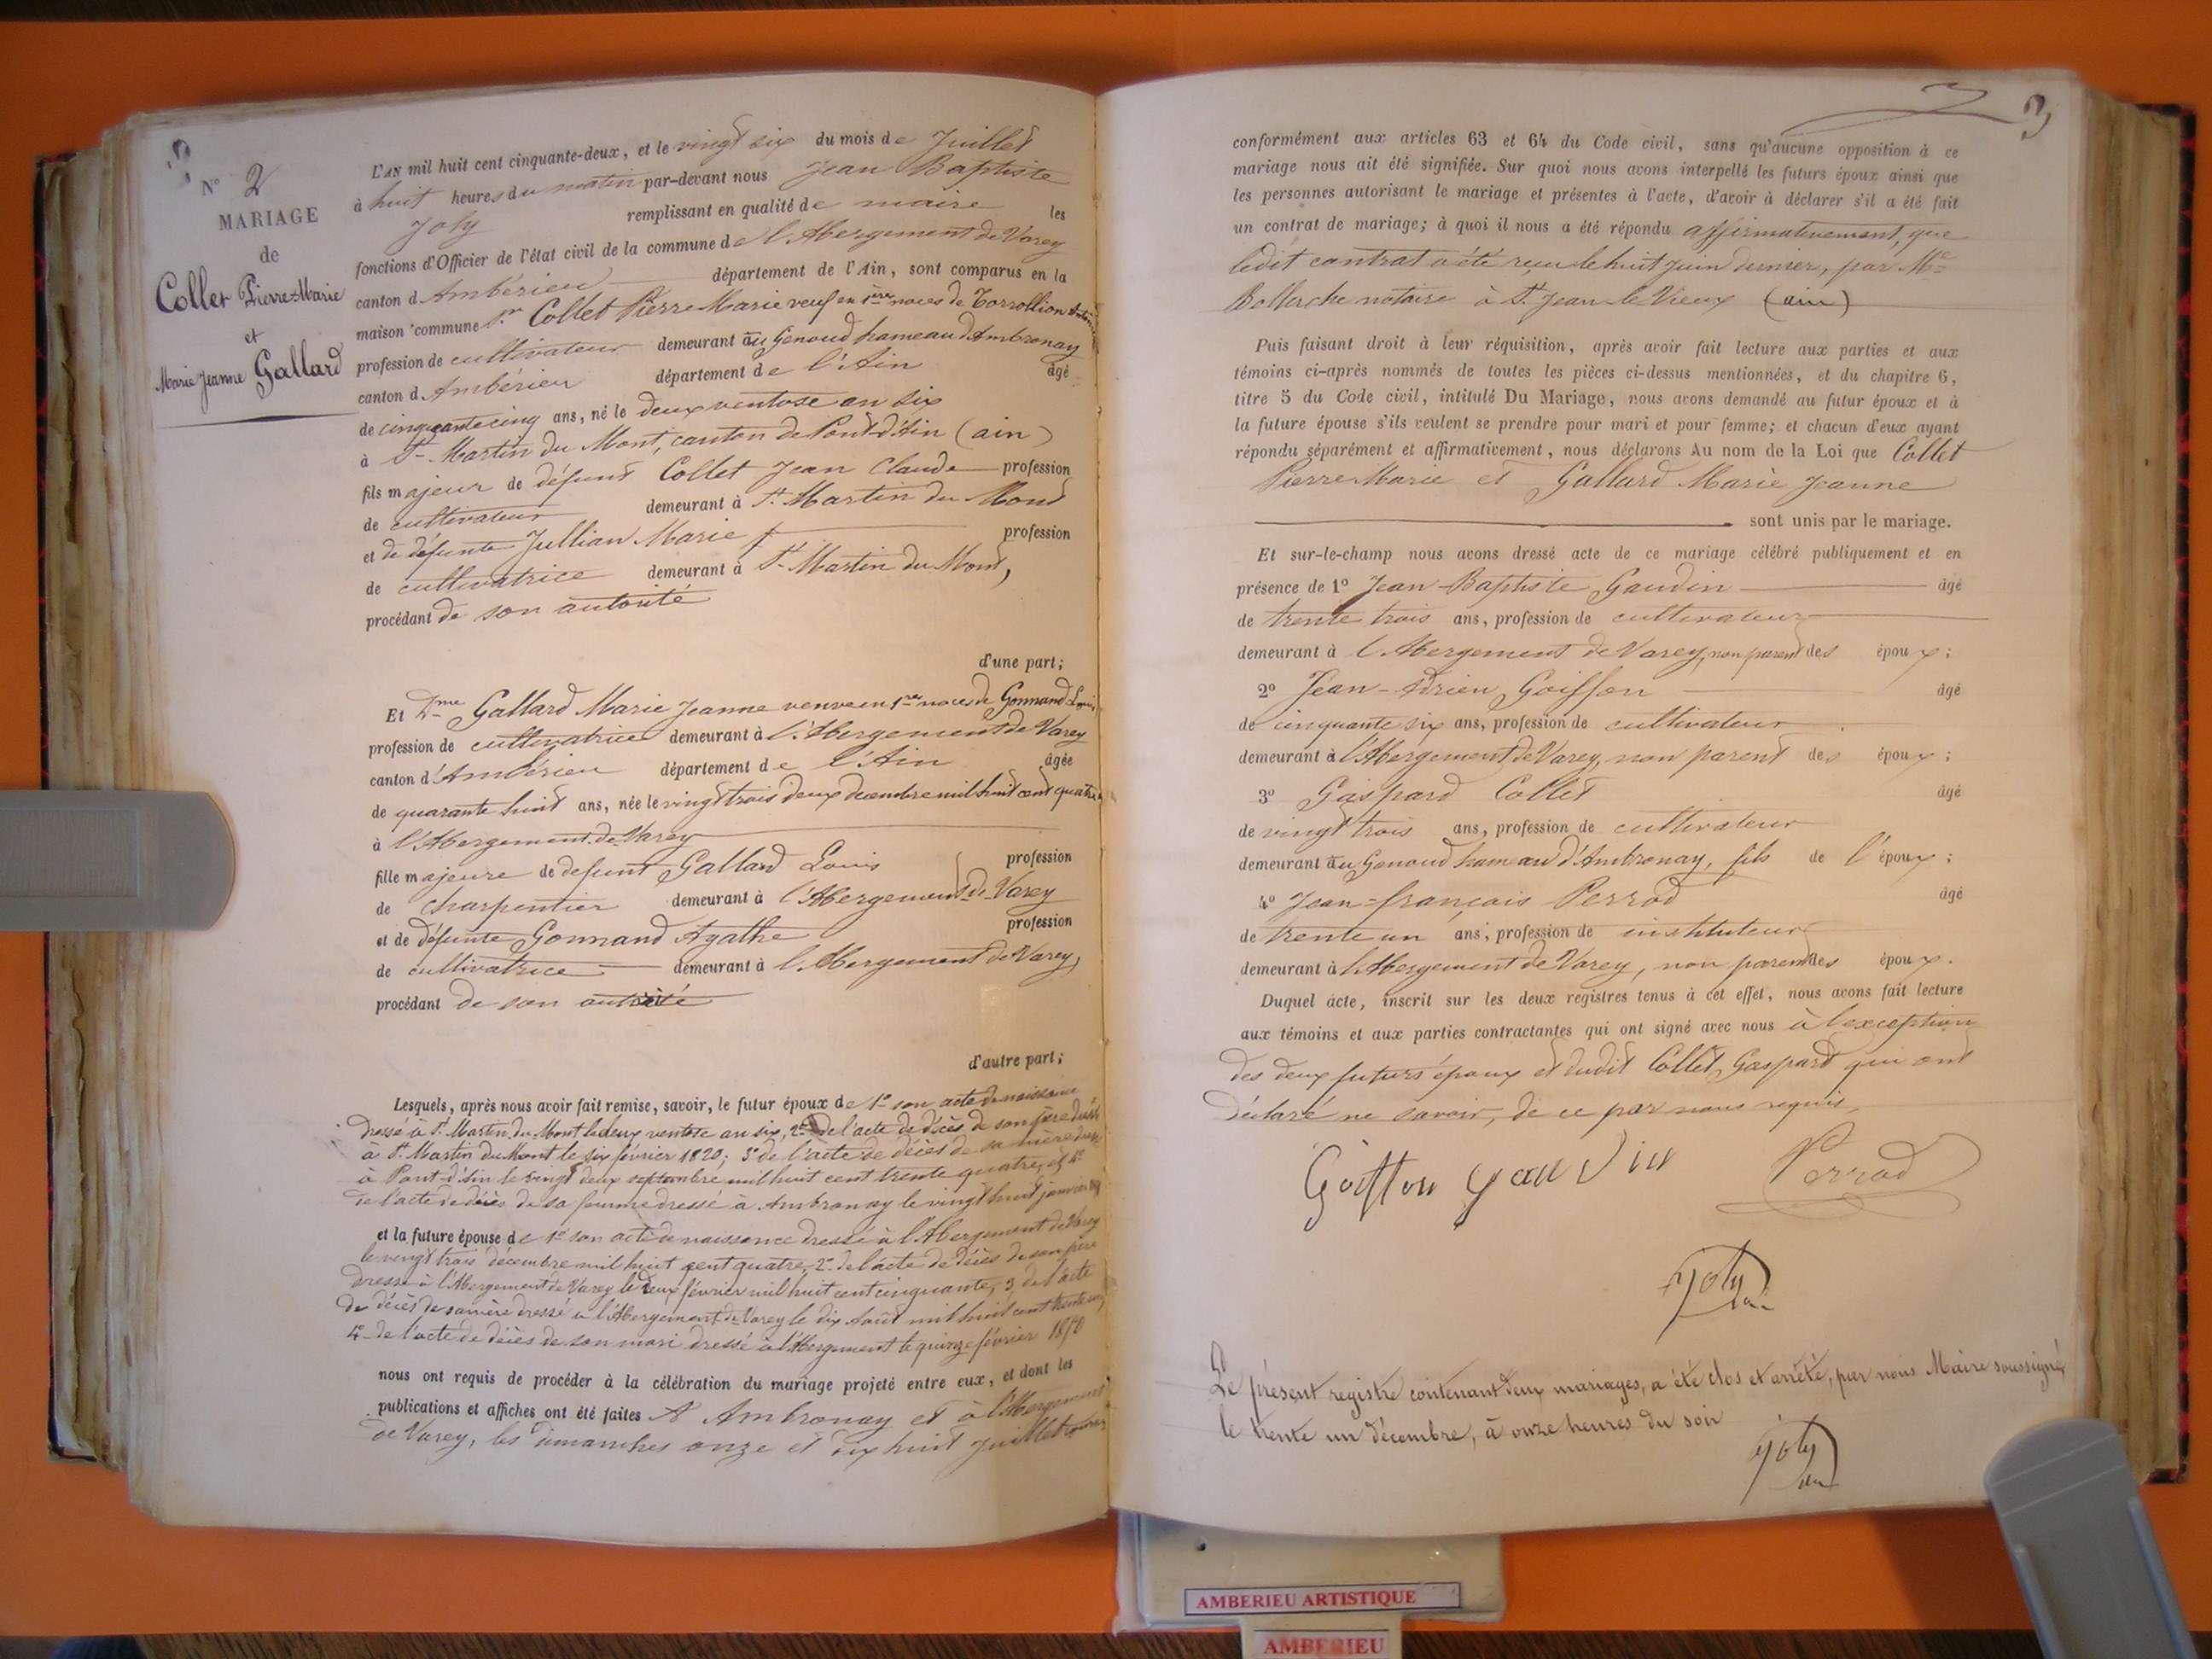 N° 2
MARIAGE
de
Collet Pierre Marie
et
Marie Jeanne Gallard
L'AN mil huit cent cinquante-deux, et le vingt six du mois de Juillet
à huit heures du matin par-devant nous Jean Baptiste
Joly remplissant en qualité de maire les
fonctions d'Officier de l'état civil de la commune de l'Abergement de Varey
canton d'Ambérieu département de l'Ain, sont comparus en la
maison commune Sr Collet Pierre Marie veuf en 1ères noces de Torrollion
profession de cultivateur demeurant au Genoud hameau d'Ambronay
canton d'Ambérieu département de l'Ain âgé
de cinquante cinq ans, né le deux ventose an six
à St Martin du Mont, canton de Pont-d'Ain (ain)
fils majeur de défunt Collet Jean Claude profession
de cultivateur demeurant à St Martin du Mont
et de défunte Jullian Marie profession
de cultivatrice demeurant à St Martin du Mont,
procédant de son autorité
d'une part;
Et Dme Gallard Marie Jeanne veuve en 1res noces de Gonnand Louis
profession de cultivatrice demeurant à l'Abergement de Varey
canton d'Ambérieu département de l'Ain âgée
de quarante huit ans, née le vingt trois deux décembre mil huit cent quatre
à l'Abergement de Varey
fille majeure de défunt Gallard Louis profession
de charpentier demeurant à l'Abergement de Varey
et de défunte Gonnand Agathe profession
de cultivatrice demeurant à l'Abergement de Varey,
procédant de son autorité
d'autre part;
Lesquels, après nous avoir fait remise, savoir, le futur époux de 1° son acte de naissance
dressé à St Martin du Mont le deux ventose an six, 2° de l'acte de décès de son père dressé
à St Martin du Mont le six février 1820; 3° de l'acte de décès de sa mère dressé
à Pont-d'Ain le vingt deux septembre mil huit cent trente quatre, et 4°
de l'acte de décès de sa femme dressé à Ambronay le vingt huit janvier
et la future épouse de 1° son acte de naissance dressé à l'Abergement de Varey
le vingt trois décembre mil huit cent quatre, 2° de l'acte de décès de son père
dressé à l'Abergement de Varey le deux février mil huit cent cinquante, 3° de l'acte
de décès de sa mère dressé à l'Abergement de Varey le dix Août mil huit cent trente
4° de l'acte de décès de son mari dressé à l'Abergement le quinze février 1850
nous ont requis de procéder à la célébration du mariage projeté entre eux, et dont les
publications et affiches ont été faites A Ambronay et à l'Abergement
de Varey, les dimanches onze et dix huit Juillet
3
conformément aux articles 63 et 64 du Code civil, sans qu'aucune opposition à ce
mariage nous ait été signifiée. Sur quoi nous avons interpellé les futurs époux ainsi que
les personnes autorisant le mariage et présentes à l'acte, d'avoir à déclarer s'il a été fait
un contrat de mariage; à quoi il nous a été répondu affirmativement, que
ledit contrat a été reçu le huit juin dernier, par Me
notaire à St Jean le Vieux (ain)
Puis faisant droit à leur réquisition, après avoir fait lecture aux parties et aux
témoins ci-après nommés de toutes les pièces ci-dessus mentionnées, et du chapitre 6,
titre 5 du Code civil, intitulé Du Mariage, nous avons demandé au futur époux et à
la future épouse s'ils veulent se prendre pour mari et pour femme; et chacun d'eux ayant
répondu séparément et affirmativement, nous déclarons Au nom de la Loi que Collet
Pierre Marie et Gallard Marie Jeanne
sont unis par le mariage.
Et sur-le-champ nous avons dressé acte de ce mariage célébré publiquement et en
présence de 1° Jean-Baptiste Gaudin âgé
de trente trois ans, profession de cultivateur
demeurant à l'Abergement de Varey, non parent des époux;
2° Jean-Adrien Goiffon âgé
de cinquante six ans, profession de cultivateur
demeurant à l'Abergement de Varey, non parent des époux;
3° Gaspard Collet âgé
de vingt trois ans, profession de cultivateur
demeurant au Genoud hameau d'Ambronay, fils de l'époux;
4° Jean-françois Perrod âgé
de trente un ans, profession de instituteur
demeurant à l'Abergement de Varey, non parent des époux.
Duquel acte, inscrit sur les deux registres tenus à cet effet, nous avons fait lecture
aux témoins et aux parties contractantes qui ont signé avec nous à l'exception
des deux futurs époux et dudit Collet Gaspard qui ont
déclaré ne savoir, de ce par nous requis
Goiffon gaudin Perrod
Joly
Le présent registre contenant deux mariages, a été clos et arrêté, par nous Maire soussigné
le trente un décembre, à onze heures du soir
Joly
AMBERIEU ARTISTIQUE
AMBERIEU